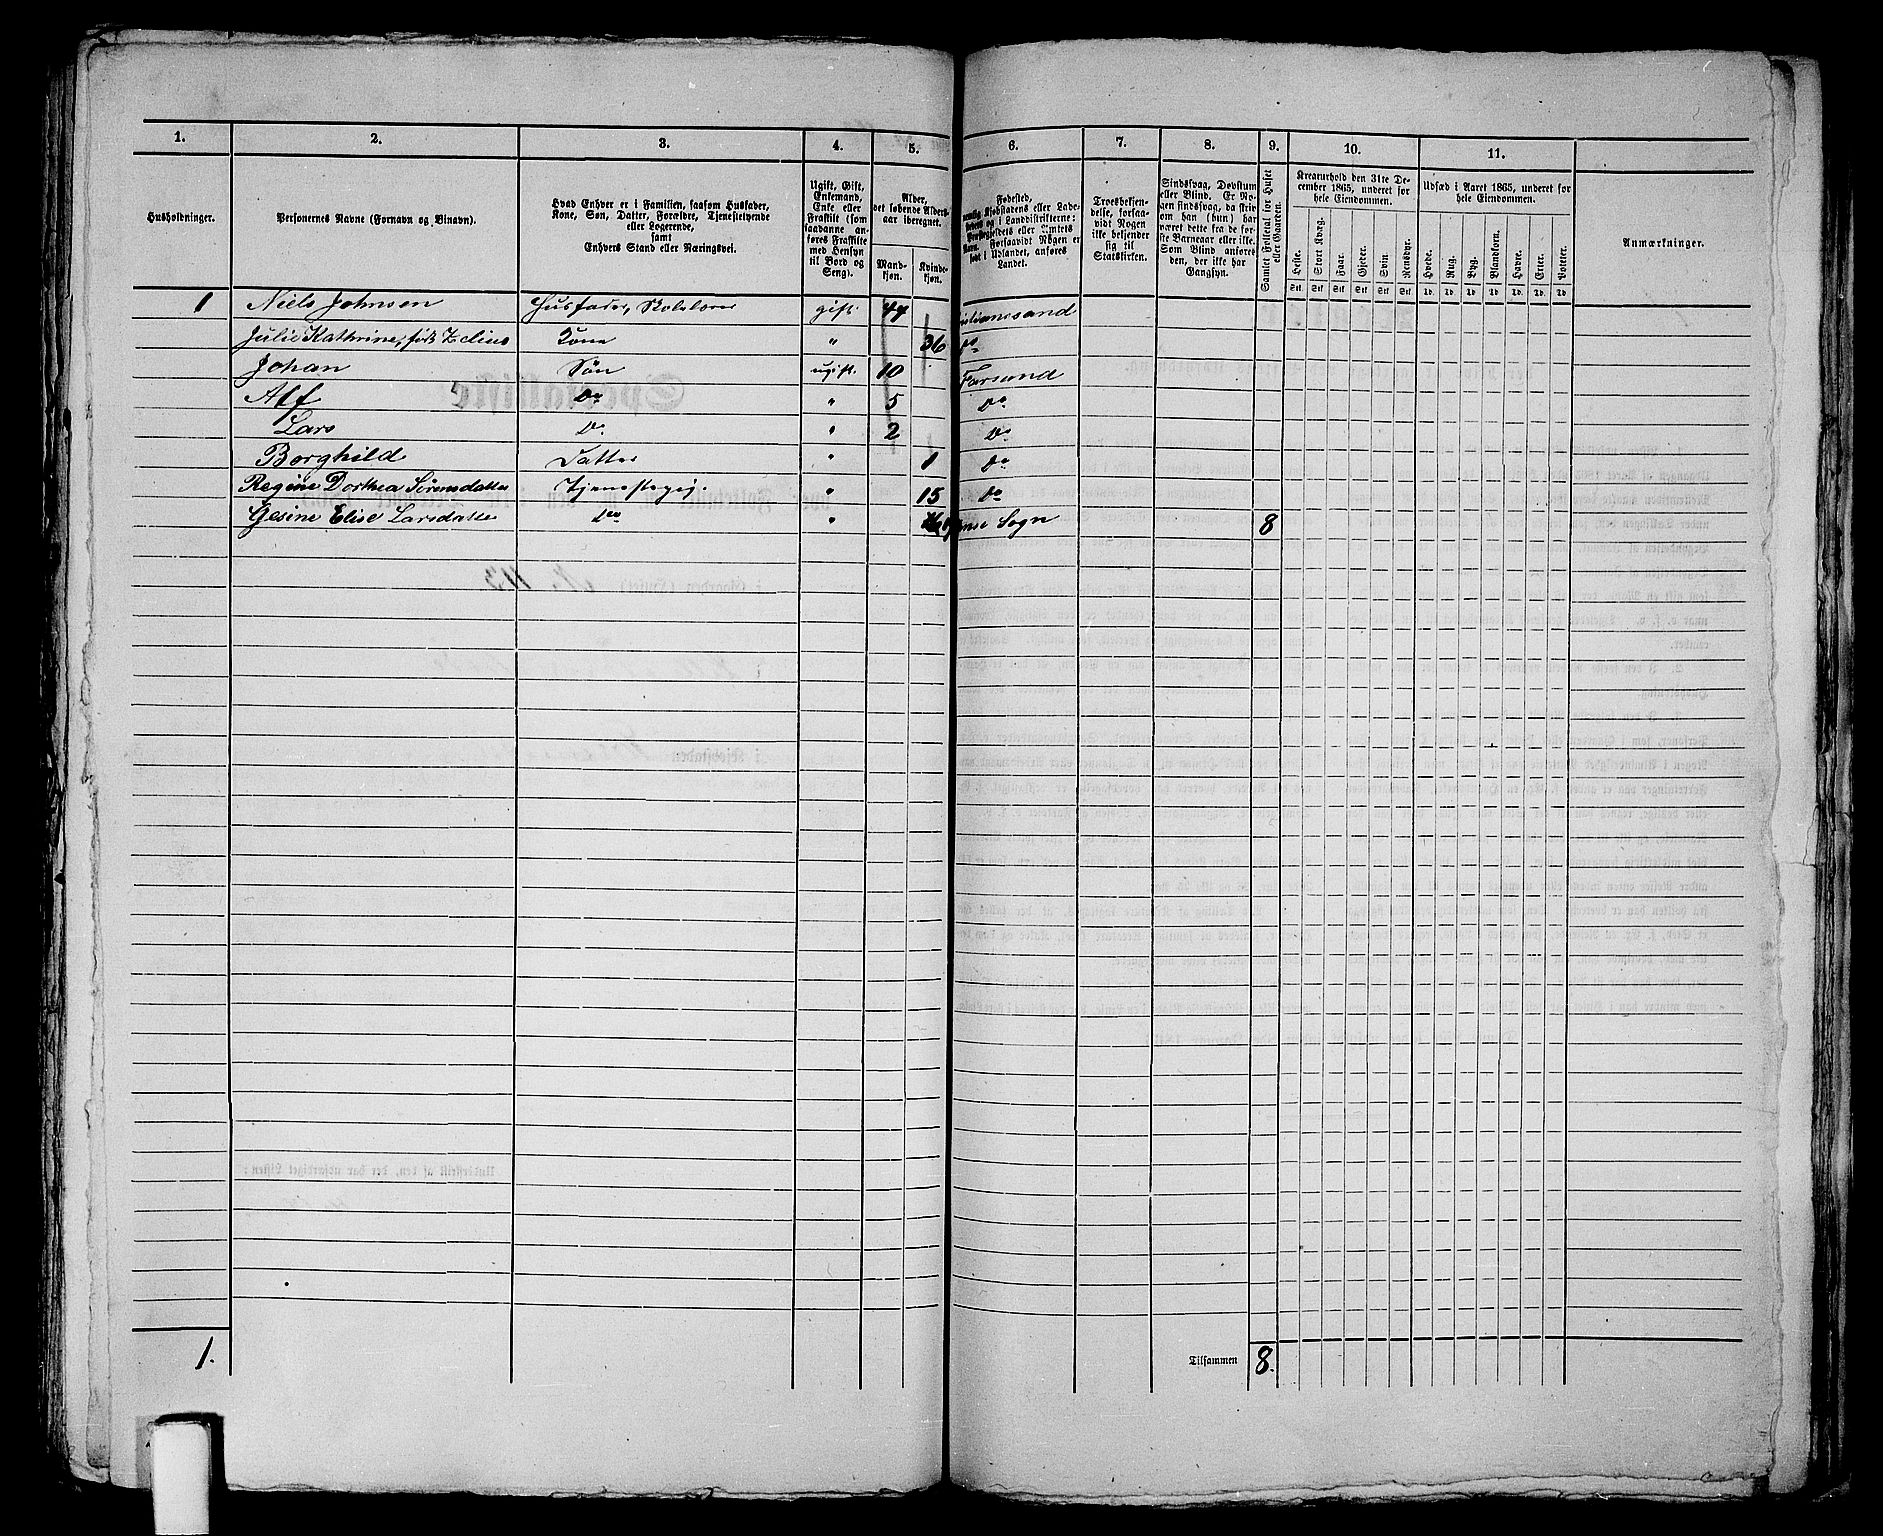 1. 2. 3. 4. 5. 6. 7. 8. 9. 10. 11.
Husholdninger.
Personernes Navne (Fornavn og Tilnavn).
Hvad Enhver er i Familien, saasom Husfader,
Kone, Søn, Datter, Forældre, Tjenestetyende
eller Logerende,
samt
Enhvers Stand eller Næringsvei.
Ugift, Gift,
Enkemand,
Enke eller
Fraskilt (som
saadanne an-
føres Fraskilte
med Hensyn
til Bord og
Seng).
Alder,
det løbende Alders-
aar iberegnet.
Mand-
kjøn.
Kvinde-
kjøn.
Fødested,
Kjøbstadens eller Lade-
i Landdistrikterne:
eller Amtets
Navn. Forsaavidt Nogen er
født i Udlandet, anføres
Landet.
Troesbekjen-
delse, forsaa-
vidt Nogen
ikke bekjender
sig til
Statskirken.
Sindssvag, Døvstum
eller Blind. Er No-
gen sindssvag, da skri-
ves om han (hun) har
været dette fra de før-
ste Barneaar eller ikke.
Som Blind anføres
den, der ikke har
Gangsyn.
Samlet Folketal for Huset
eller Gaarden.
Kreaturhold den 31te De-
cember 1865, underet for
hele Eiendommen.
Heste. Stort Kvæg. Faar. Gjeter. Svin. Rensdyr.
Stk. Stk. Stk. Stk. Stk. Stk.
Udsæd i Aaret 1865, underet for
hele Eiendommen.
Hvede. Rug. Byg. Blandkorn. Havre. Erter. Poteter.
Td. Td. Td. Td. Td. Td. Td.
Anmærkninger.
1 Niels Johnsen Husfader, Skolelærer gift. 44 Christianssand
Julie Kathrine, født Zelius Kone " 36 do
Johan Søn ugift. 10 Farsund
Alf Do " 5 Do
Lars Do " 2 Do
Borghild Datter " 1 Do
Regine Dorthea Sørensdatter Tjenestepig. " 15 Do
Gesine Elise Larsdatter Do " Sogn 8
1. Tilsammen 8.